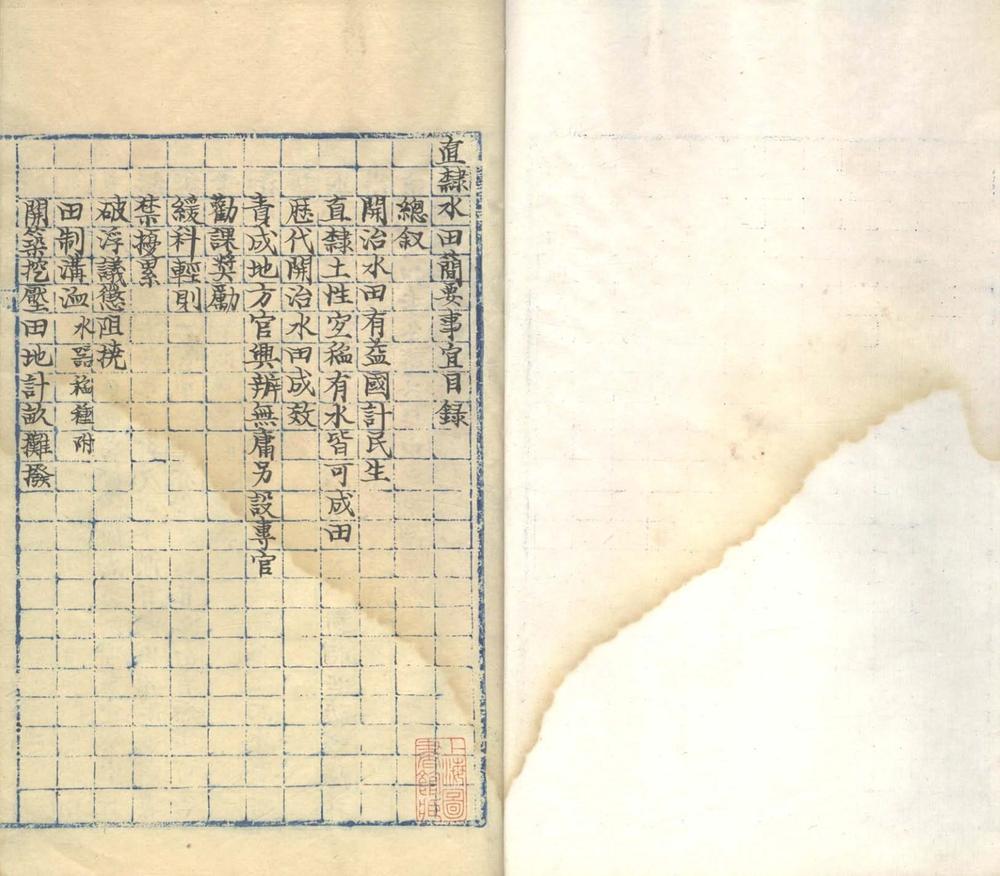 直隸水田蕳要事宜目録
總叙
開治水田有益國計民生
直隸土性宜稻有水皆可成田
歷代開治水田成效
責成地方官興辦無庸另設專官
勸課奬勵
緩科輕則
禁擾累
破浮議懲阻撓
田制溝洫水器稻種附
開築挖壓田地計畝攤撥
上海圖書館藏